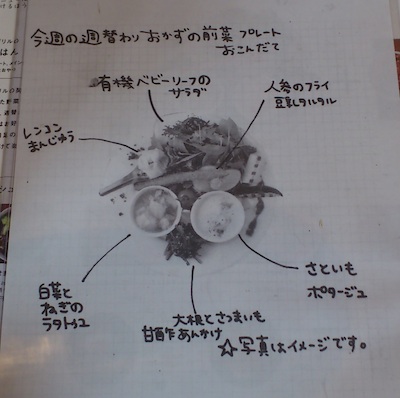 今週の週替わりおかずの前菜プレート
おこんだて
有機ベビーリーフの
サラダ
人参のフライ
豆乳タルタル
レンコン
まんじゅう
白菜と
ねぎの
ラタトゥユ
大根とさつまいも
甘酢あんかけ
さといも
ポタージュ
☆写真はイメージです。